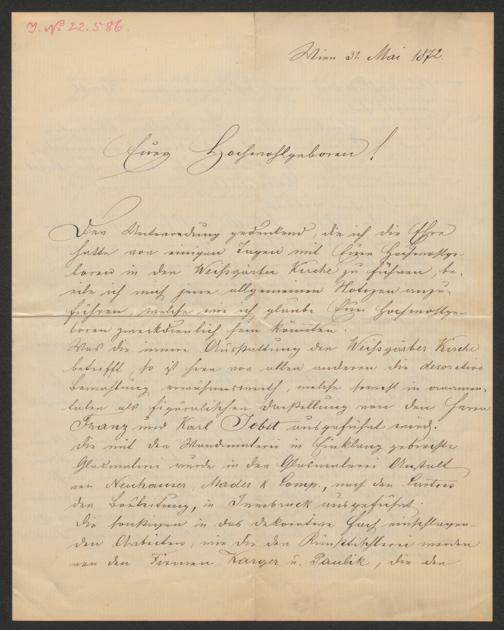 J. No 22.586.
Wien 31. Mai 1872.
Euer Hochwohlgeboren!
Der Unterredung gedenkend, die ich die Ehre
hatte vor einigen Tagen mit Euer Hochwohlge-
boren in der Weißgärber Kirche zu führen, be-
eile ich mich jene allgemeinen Notizen anzu-
führen, welche wie ich glaube Euer Hochwohlge-
boren zweckdienlich sein könnten.
Was die innere Ausstattung der Weißgärber Kirche
betrifft, so ist hier vor allen anderen die decorative
Bemahlung erwähnenswerth, welche sowohl in ornamen-
talen als figuralischer Darstellung von den Herrn
Franz und Karl Jobst ausgeführt wird.
Die mit der Wandmalerei in Einklang gebrachte
Glasmalerei wurde in der Glasmalerei Anstalt
von Neuhauser, Mader & Comp., nach den Cartons
der Bauleitung, in Innsbruck ausgeführt,
die sonstigen in das dekorative Fach einschlagen-
den Arbeiten, wie die der Kunsttischlerei werden
von den Firmen Karger u. Paulik, die der